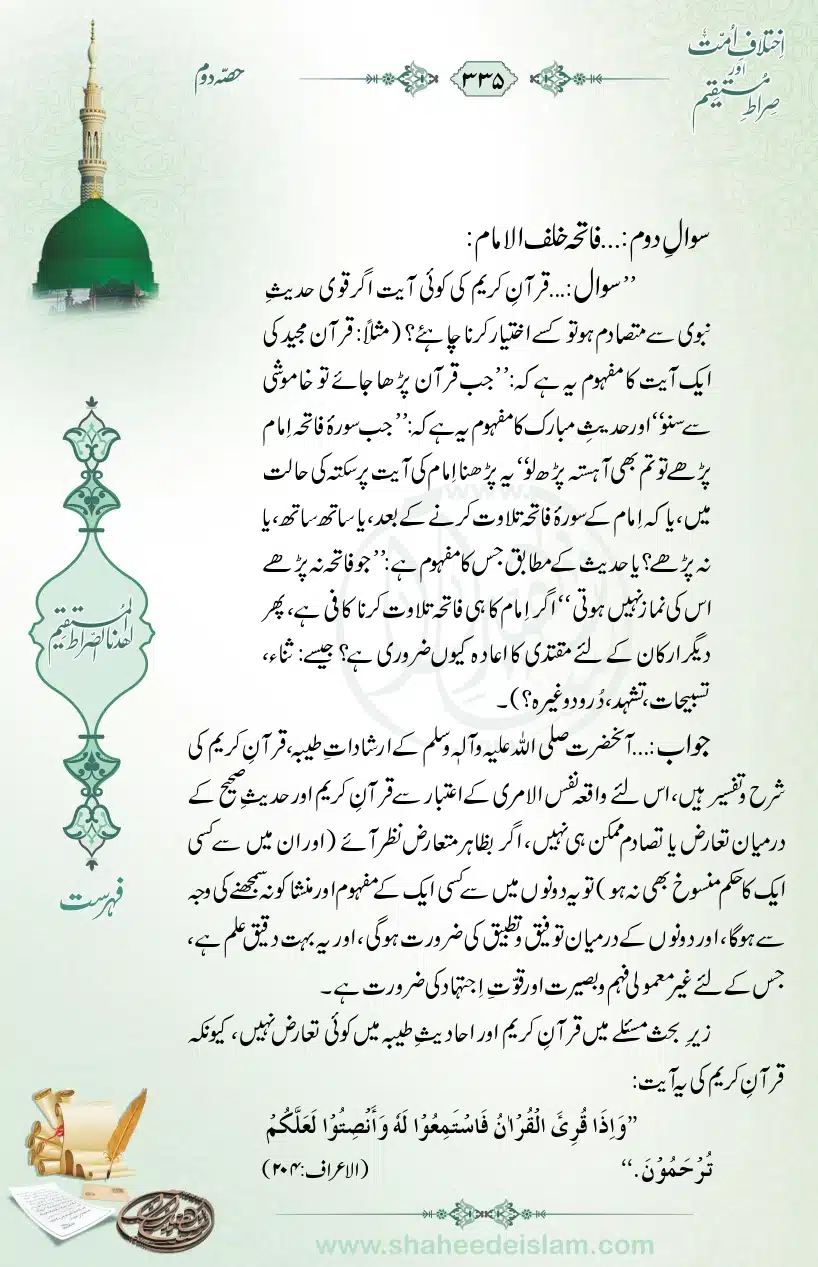 اِختلافِ اُمّت
اور
صِراطِ مُستقیم
۳۳۵
حصّہ دوم
سوالِ دوم:...فاتحہ خلف الامام:
’’سوال:...قرآنِ کریم کی کوئی آیت اگر قوی حدیثِ
نبوی سے متصادم ہو تو کسے اختیار کرنا چاہئے؟ (مثلاً: قرآن مجید کی
ایک آیت کا مفہوم یہ ہے کہ: ’’جب قرآن پڑھا جائے تو خاموشی
سے سنو‘‘ اور حدیثِ مبارک کا مفہوم یہ ہے کہ: ’’جب سورۂ فاتحہ اِمام
پڑھے تو تم بھی آہستہ پڑھ لو‘‘ یہ پڑھنا اِمام کی آیت پر سکتہ کی حالت
میں، یا کہ اِمام کے سورۂ فاتحہ تلاوت کرنے کے بعد، یا ساتھ ساتھ، یا
نہ پڑھے؟ یا حدیث کے مطابق جس کا مفہوم ہے: ’’جو فاتحہ نہ پڑھے
اس کی نماز نہیں ہوتی‘‘ اگر اِمام کا ہی فاتحہ تلاوت کرنا کافی ہے، پھر
دیگر ارکان کے لئے مقتدی کا اعادہ کیوں ضروری ہے؟ جیسے: ثناء،
تسبیحات، تشہد، دُرود وغیرہ؟)۔
جواب:...آنحضرت صلی اللہ علیہ وآلہٖ وسلم کے ارشاداتِ طیبہ، قرآنِ کریم کی
شرح وتفسیر ہیں، اس لئے واقعہ نفس الامری کے اعتبار سے قرآنِ کریم اور حدیثِ صحیح کے
درمیان تعارض یا تصادم ممکن ہی نہیں، اگر بظاہر متعارض نظر آئے (اور ان میں سے کسی
ایک کا حکم منسوخ بھی نہ ہو) تو یہ دونوں میں سے کسی ایک کے مفہوم اور منشا کو نہ سمجھنے کی وجہ
سے ہوگا، اور دونوں کے درمیان توفیق وتطبیق کی ضرورت ہوگی، اور یہ بہت دقیق علم ہے،
جس کے لئے غیرمعمولی فہم وبصیرت اور قوّتِ اِجتہاد کی ضرورت ہے۔
زیرِ بحث مسئلے میں قرآنِ کریم اور احادیثِ طیبہ میں کوئی تعارض نہیں، کیونکہ
قرآنِ کریم کی یہ آیت:
’’وَاِذَا قُرِئَ الْقُرْاٰنُ فَاسْتَمِعُوْا لَهٗ وَأَنْصِتُوْا لَعَلَّكُمْ
تُرْحَمُوْنَ.‘‘ (الاعراف:۲۰۴)
اھدنا الصّراط المُستقیم
فہرست
www.shaheedeislam.com